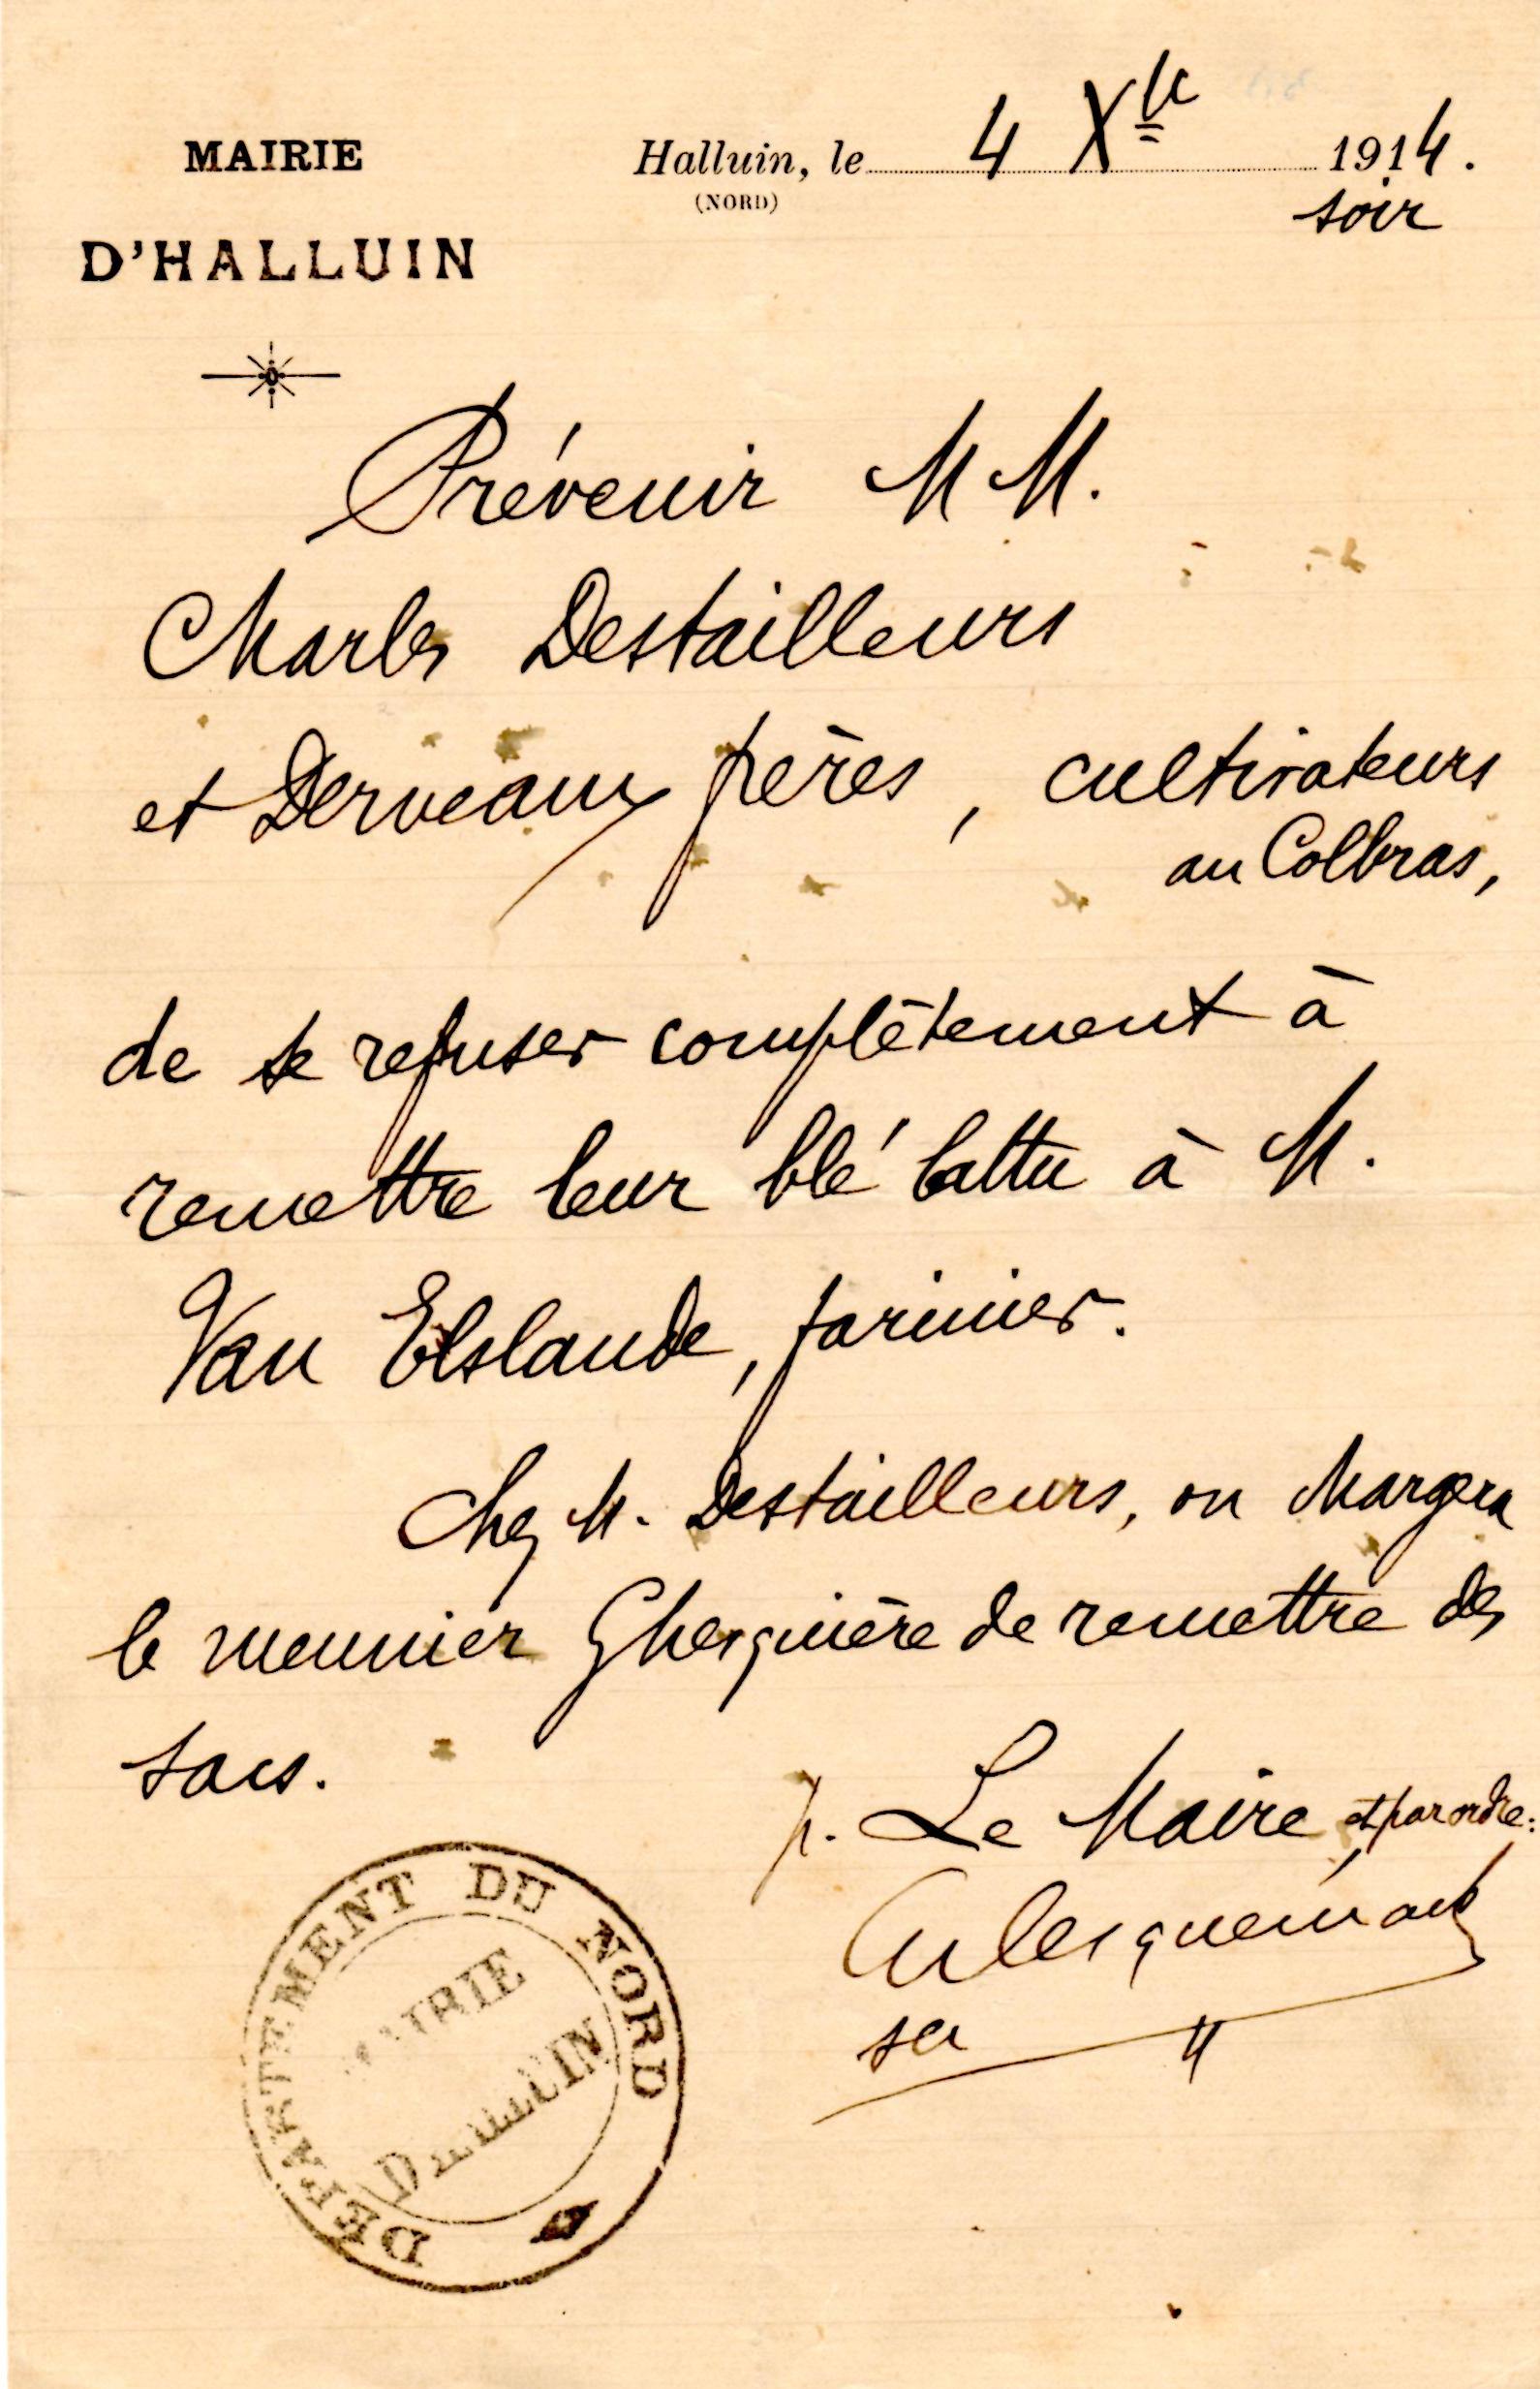 MAIRIE
D'HALLUIN
Halluin, le 4 Xbre 1914.
(NORD)
soir
Prévenir MM.
Charles Destailleurs
et Derveaux frères, cultivateurs
au Colbras,
de se refuser complètement à
remettre leur blé battu à M.
Van Elslande, farinier.
Chez M. Destailleurs, on chargera
le meunier Ghesquière de remettre des
sacs.
p. Le Maire, et par ordre:
DEPARTEMENT DU NORD
MAIRIE
D'HALLUIN